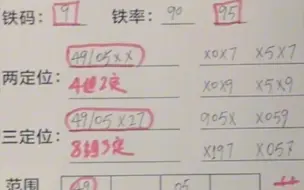 铁码: 9 铁率: 90 95
49/05XX X0X7 X5X7
两定位:
4组2定 X0X9 X5X9
49/05X27 905X X059
三定位:
8组3定 X197 X057
范围 49 05